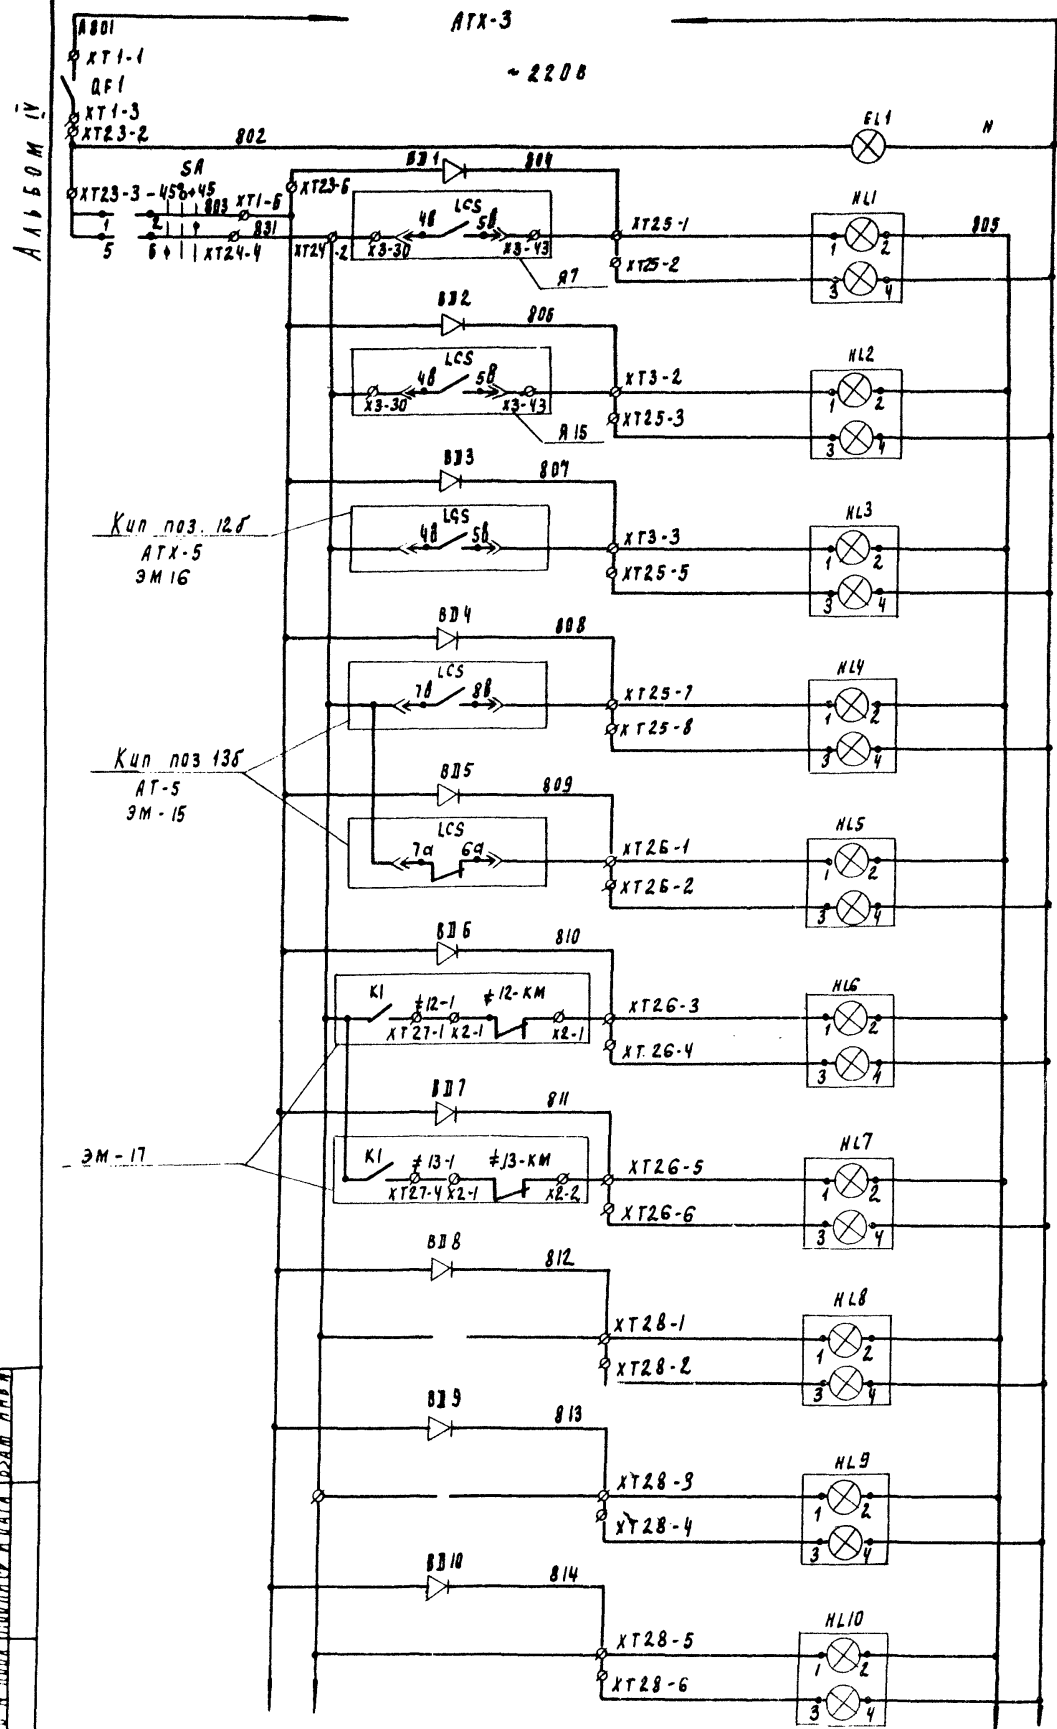 АТХ-3
А801
ХТ1-1
~220В
QF1
ХТ1-3
ХТ23-2
802
EL1
N
Альбом IV
SA
ХТ23-3 -45°0+45
803 ХТ1-6
ХТ23-6
ВД1
804
1 2
831
5 6 ХТ24-4
ХТ24-2
LCS
4в 5в
Х3-30 Х3-43
А7
ХТ25-1
ХТ25-2
HL1
805
1 2
3 4
ВД2
806
LCS
4в 5в
Х3-30 Х3-43
А15
ХТ3-2
ХТ25-3
HL2
1 2
3 4
ВД3
807
Кип поз. 12б
АТХ-5
ЭМ 16
LCS
4в 5в
ХТ3-3
ХТ25-5
HL3
1 2
3 4
ВД4
808
LCS
7в 8в
ХТ25-7
ХТ25-8
HL4
1 2
3 4
Кип поз 13б
АТ-5
ЭМ-15
ВД5
809
LCS
7а 6а
ХТ26-1
ХТ26-2
HL5
1 2
3 4
ВД6
810
К1 ≠12-1 ≠12-КМ
ХТ27-1 Х2-1 Х2-1
ХТ26-3
ХТ.26-4
HL6
1 2
3 4
ВД7
811
ЭМ-17
К1 ≠13-1 ≠13-КМ
ХТ27-4 Х2-1 Х2-2
ХТ26-5
ХТ26-6
HL7
1 2
3 4
ВД8
812
ХТ28-1
ХТ28-2
HL8
1 2
3 4
ВД9
813
ХТ28-3
ХТ28-4
HL9
1 2
3 4
ВД10
814
ХТ28-5
ХТ28-6
HL10
1 2
3 4